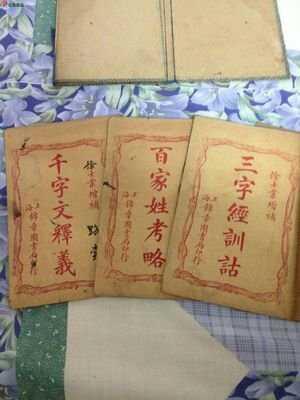 徐士業增補
三字經訓詁
上海錦章圖書局印行
百家姓考略
上海錦章圖書局印行
徐士業增補
千字文釋義
上海錦章圖書局